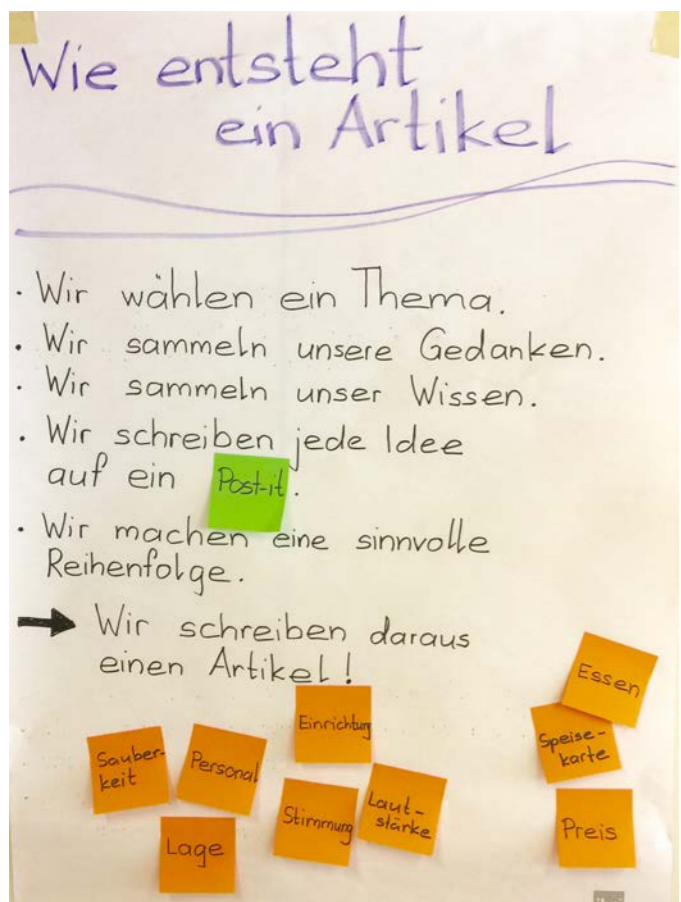 Wie entsteht
ein Artikel
· Wir wählen ein Thema.
· Wir sammeln unsere Gedanken.
· Wir sammeln unser Wissen.
· Wir schreiben jede Idee
auf ein Post-it.
· Wir machen eine sinnvolle
Reihenfolge.
→ Wir schreiben daraus
einen Artikel!
Sauber-
keit
Personal
Lage
Einrichtung
Stimmung
Laut-
stärke
Essen
Speise-
karte
Preis